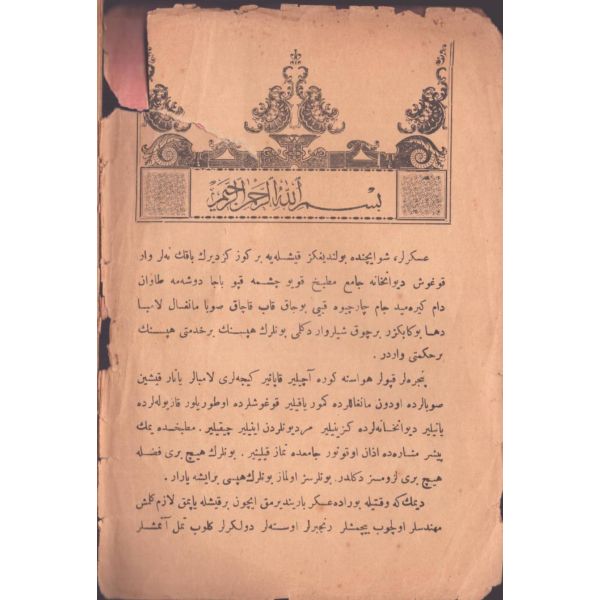 بسم الله الرحمن الرحيم
عسكرلر، شو ايچنده بولنديغكز قيشله‌يه بر كوز كزديرك باقك نه‌لر وار
قوغوش ديوانخانه جامع مطبخ قوبو چشمه قپو باجا دوشمه طاوان
دام كيره‌ميد جام چارچيوه قپى بوجاق قاب قاچاق صوبا مانغال لامبا
دها بوكا بكزر برچوق شيلر وار دكلمى بونلرك هپسنك بر خدمتى هپسنك
بر حكمتى واردر .
پنجره‌لر قپولر هواسنه كوره آچيلير قاپانير كيجه‌لرى لامبالر يانار قيشين
صوبالرده اودون مانغاللرده كمور ياقيلير قوغوشلرده اوطوريلور قاريوله‌لرده
ياتيلير ديوانخانه‌لرده كزينيلير مرديونلردن اينيلير چيقيلير . مطبخده يمك
پيشر مناره‌ده اذان اوقونور جامعده نماز قيلينير . بونلرك هيچ برى فضله
هيچ برى لزومسز دكلدر بونلرسز اولماز بونلرك هپسى بر ايشه يارار .
ديمك كه وقتيله بوراده عسكر بارينديرمق ايچون بر قيشله ياپمق لازم كلمش
مهندسلر اولچوب بيچمشلر رنجبرلر اوسته‌لر دولكرلر كلوب تمل آتمشلر